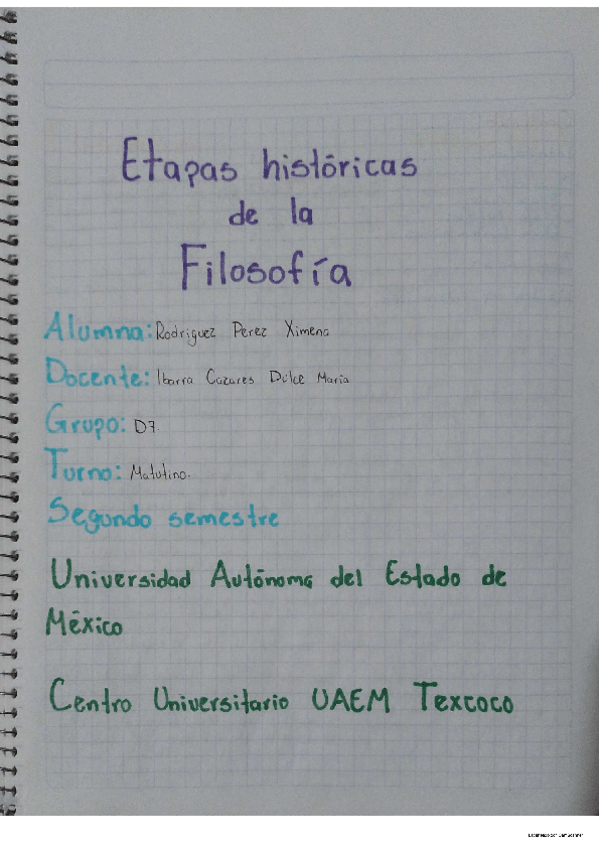 Etapas históricas
de la
Filosofía
Alumna: Rodriguez Perez Ximena
Docente: Ibarra Cazares Dulce Maria
Grupo: D7
Turno: Matutino.
Segundo semestre
Universidad Autónoma del Estado de
México
Centro Universitario UAEM Texcoco